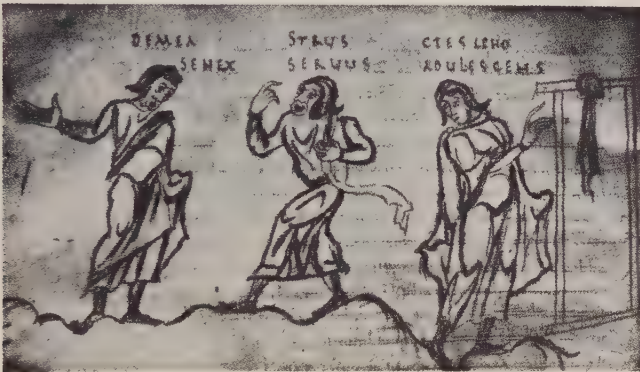 DEMEA
SENEX
SYRUS
SERUUS
CTESIPHO
ADULESCENS